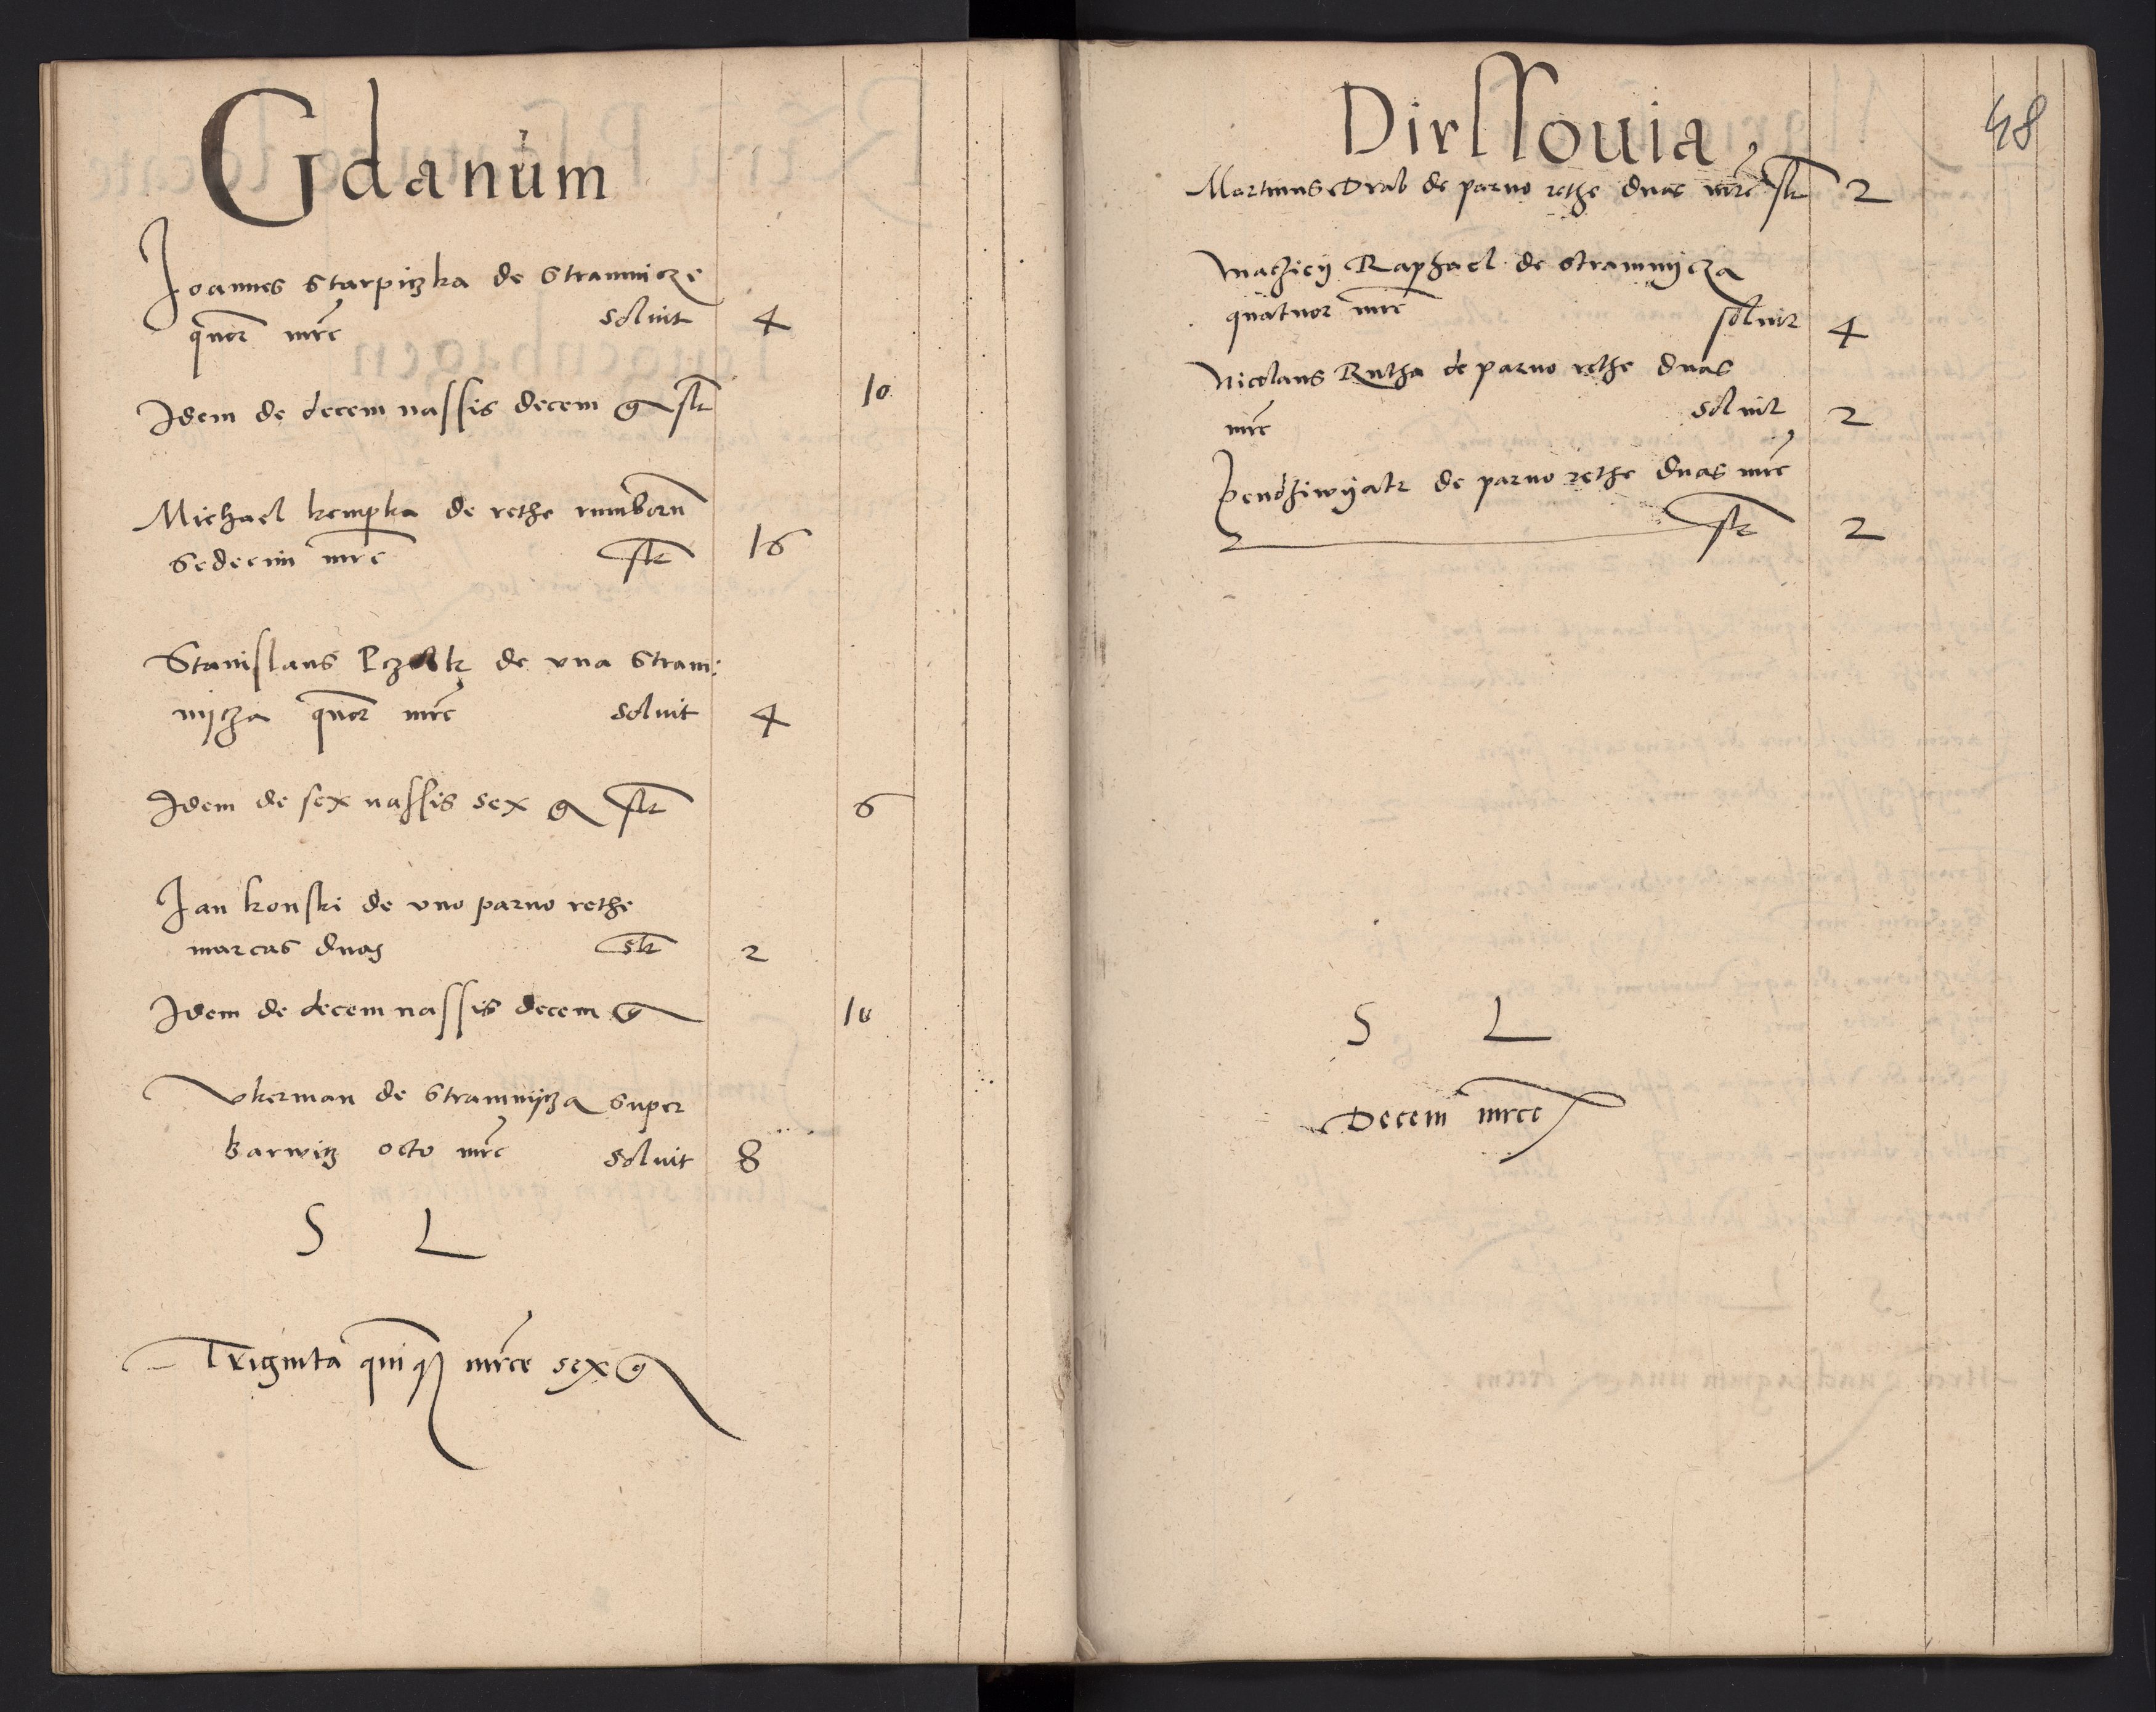 Gdanum
Joannes Starpiczka de Stramnicze
quor mrc solvit 4
Idem de decem nassis decem g slt 10
Michael kempka de rethe rumborn
Sedecim mrc slt 16
Stanislaus de vna Stram:
nijcza quor mrc soluit 4
Idem de sex nassis sex g slt 6
Jan konski de vno paruo rethe
marcas duas slt 2
Idem de decem nassis decem g 10
Vkerman de Stramnijcza super
barwicz octo mrc soluit 8
S L
Triginta quiqz mrce sex g
48
Dirssouia
Martinus Drab de paruo rethe duas mrc slt 2
Maczieij Raphael de stramnijcza
quatuor mrc soluit 4
Nicolaus Rutha de paruo rethe duas
mrc soluit 2
Pendziwijatr de paruo rethe duas mrc
slt 2
S L
Decem mrce